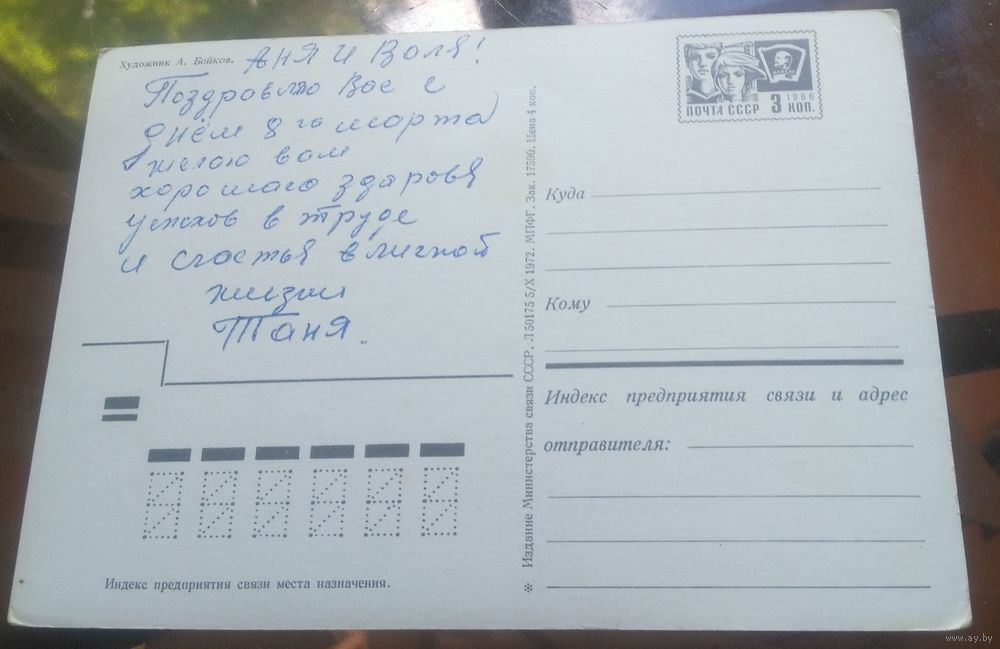 Художник А. Бойков.
АНЯ И Воля!
Поздровляю Вас с
днём 8 го марта
желаю вам
хорошаго здаровя
успехов в труде
и счастья в личной
жизни
Таня.
1966
ПОЧТА СССР 3 КОП.
Куда
Кому
Индекс предприятия связи и адрес
отправителя:
Индекс предприятия связи места назначения.
* Издание Министерства связи СССР. Л50175 5/X 1972. МПФГ. Зак. 17590. Цена 4 коп.
www.ay.by